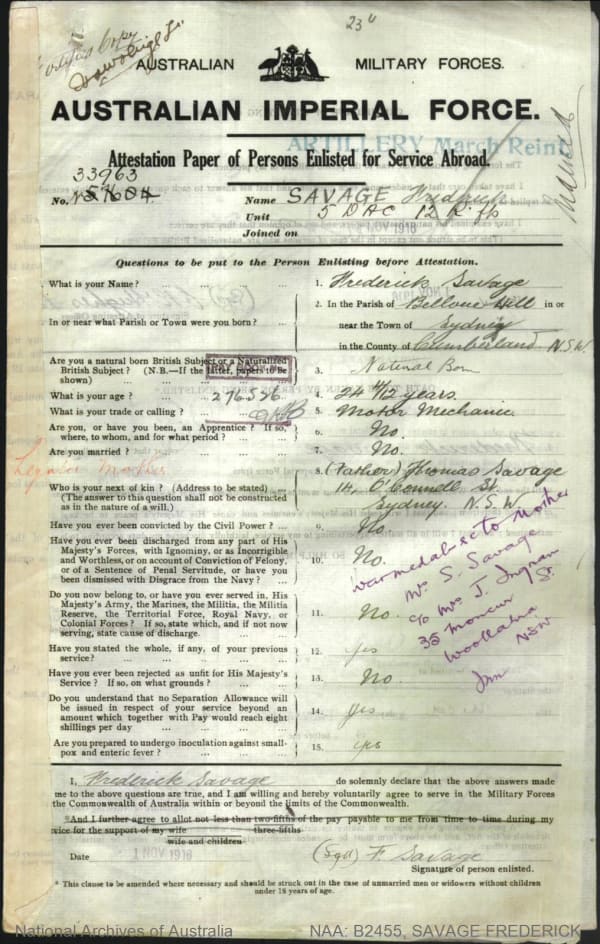 23
Certified Copy
AUSTRALIAN MILITARY FORCES.
AUSTRALIAN IMPERIAL FORCE.
ARTILLERY March Reint
Attestation Paper of Persons Enlisted for Service Abroad.
33963
No. N57604 Name SAVAGE Fredrick
Unit 5 DAC 12 R
Joined on
Questions to be put to the Person Enlisting before Attestation.
What is your Name? ... 1. Frederick Savage
2. In the Parish of Bellvue Hill in or
In or near what Parish or Town were you born? ... near the Town of Sydney
in the County of Cumberland N.S.W.
Are you a natural born British Subject or a Naturalized
British Subject? (N.B.—If the latter, papers to be 3. Natural Born
shown)
What is your age? ... 276526 4. 24 4/12 years.
What is your trade or calling? ... 5. Motor Mechanic
Are you, or have you been, an Apprentice? If so, 6. No.
where, to whom, and for what period?
Are you married? ... 7. No.
Mother
8. (Father) Thomas Savage
Who is your next of kin? (Address to be stated) ... 14, O'Connell St.
(The answer to this question shall not be construed Sydney. N.S.W.
as in the nature of a will.)
Have you ever been convicted by the Civil Power? ... 9. No.
Have you ever been discharged from any part of His
Majesty's Forces, with Ignominy, or as Incorrigible
and Worthless, or on account of Conviction of Felony, 10. No.
or of a Sentence of Penal Servitude, or have you
been dismissed with Disgrace from the Navy? ...
war medals etc to Mother
Mrs S. Savage
c/o Mrs J. Ingram
35 Moncur St.
Woollahra
NSW
Do you now belong to, or have you ever served in, His
Majesty's Army, the Marines, the Militia, the Militia
Reserve, the Territorial Force, Royal Navy, or 11. No.
Colonial Forces? If so, state which, and if not now
serving, state cause of discharge.
Have you stated the whole, if any, of your previous 12. yes
service?
Have you ever been rejected as unfit for His Majesty's 13. No.
Service? If so, on what grounds?
Do you understand that no Separation Allowance will
be issued in respect of your service beyond an 14. yes
amount which together with Pay would reach eight
shillings per day
Are you prepared to undergo inoculation against small- 15. yes
pox and enteric fever?
I, Frederick Savage do solemnly declare that the above answers made
me to the above questions are true, and I am willing and hereby voluntarily agree to serve in the Military Forces
the Commonwealth of Australia within or beyond the limits of the Commonwealth.
*And I further agree to allot not less than two-fifths of the pay payable to me from time to time during my
vice for the support of my wife three-fifths
wife and children
Date 1 NOV 1916 (Sgd) F. Savage
Signature of person enlisted.
* This clause to be amended where necessary and should be struck out in the case of unmarried men or widowers without children
under 18 years of age.
National Archives of Australia NAA: B2455, SAVAGE FREDERICK